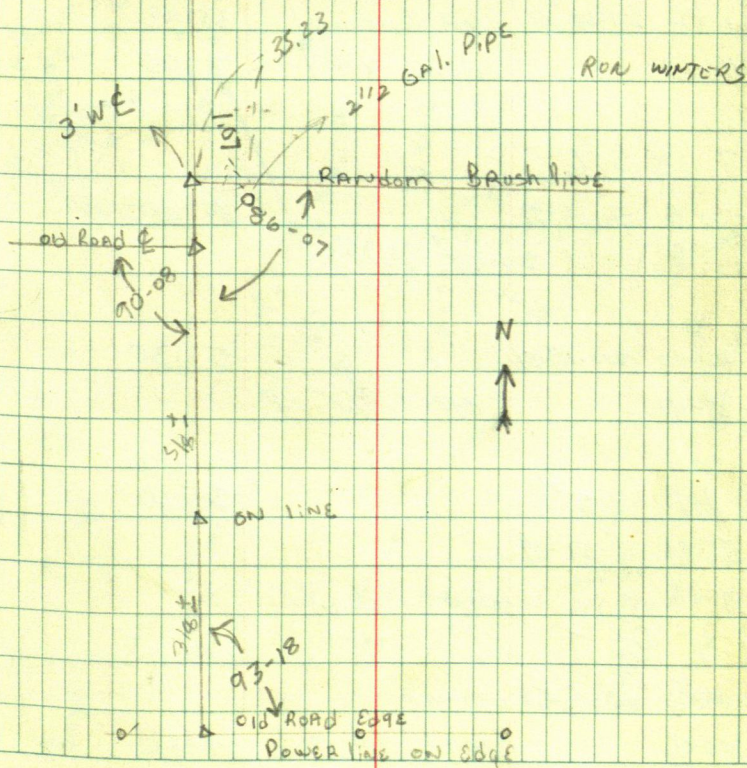 35.23
2 1/2 GAl. PiPE
RON WINTERS
3' W ℄
1.07
RANdom BRush liNE
086-07
old Road ℄
90-08
N
ON liNE
93-18
Old ROAD EdgE
POWER liNE ON EdgE